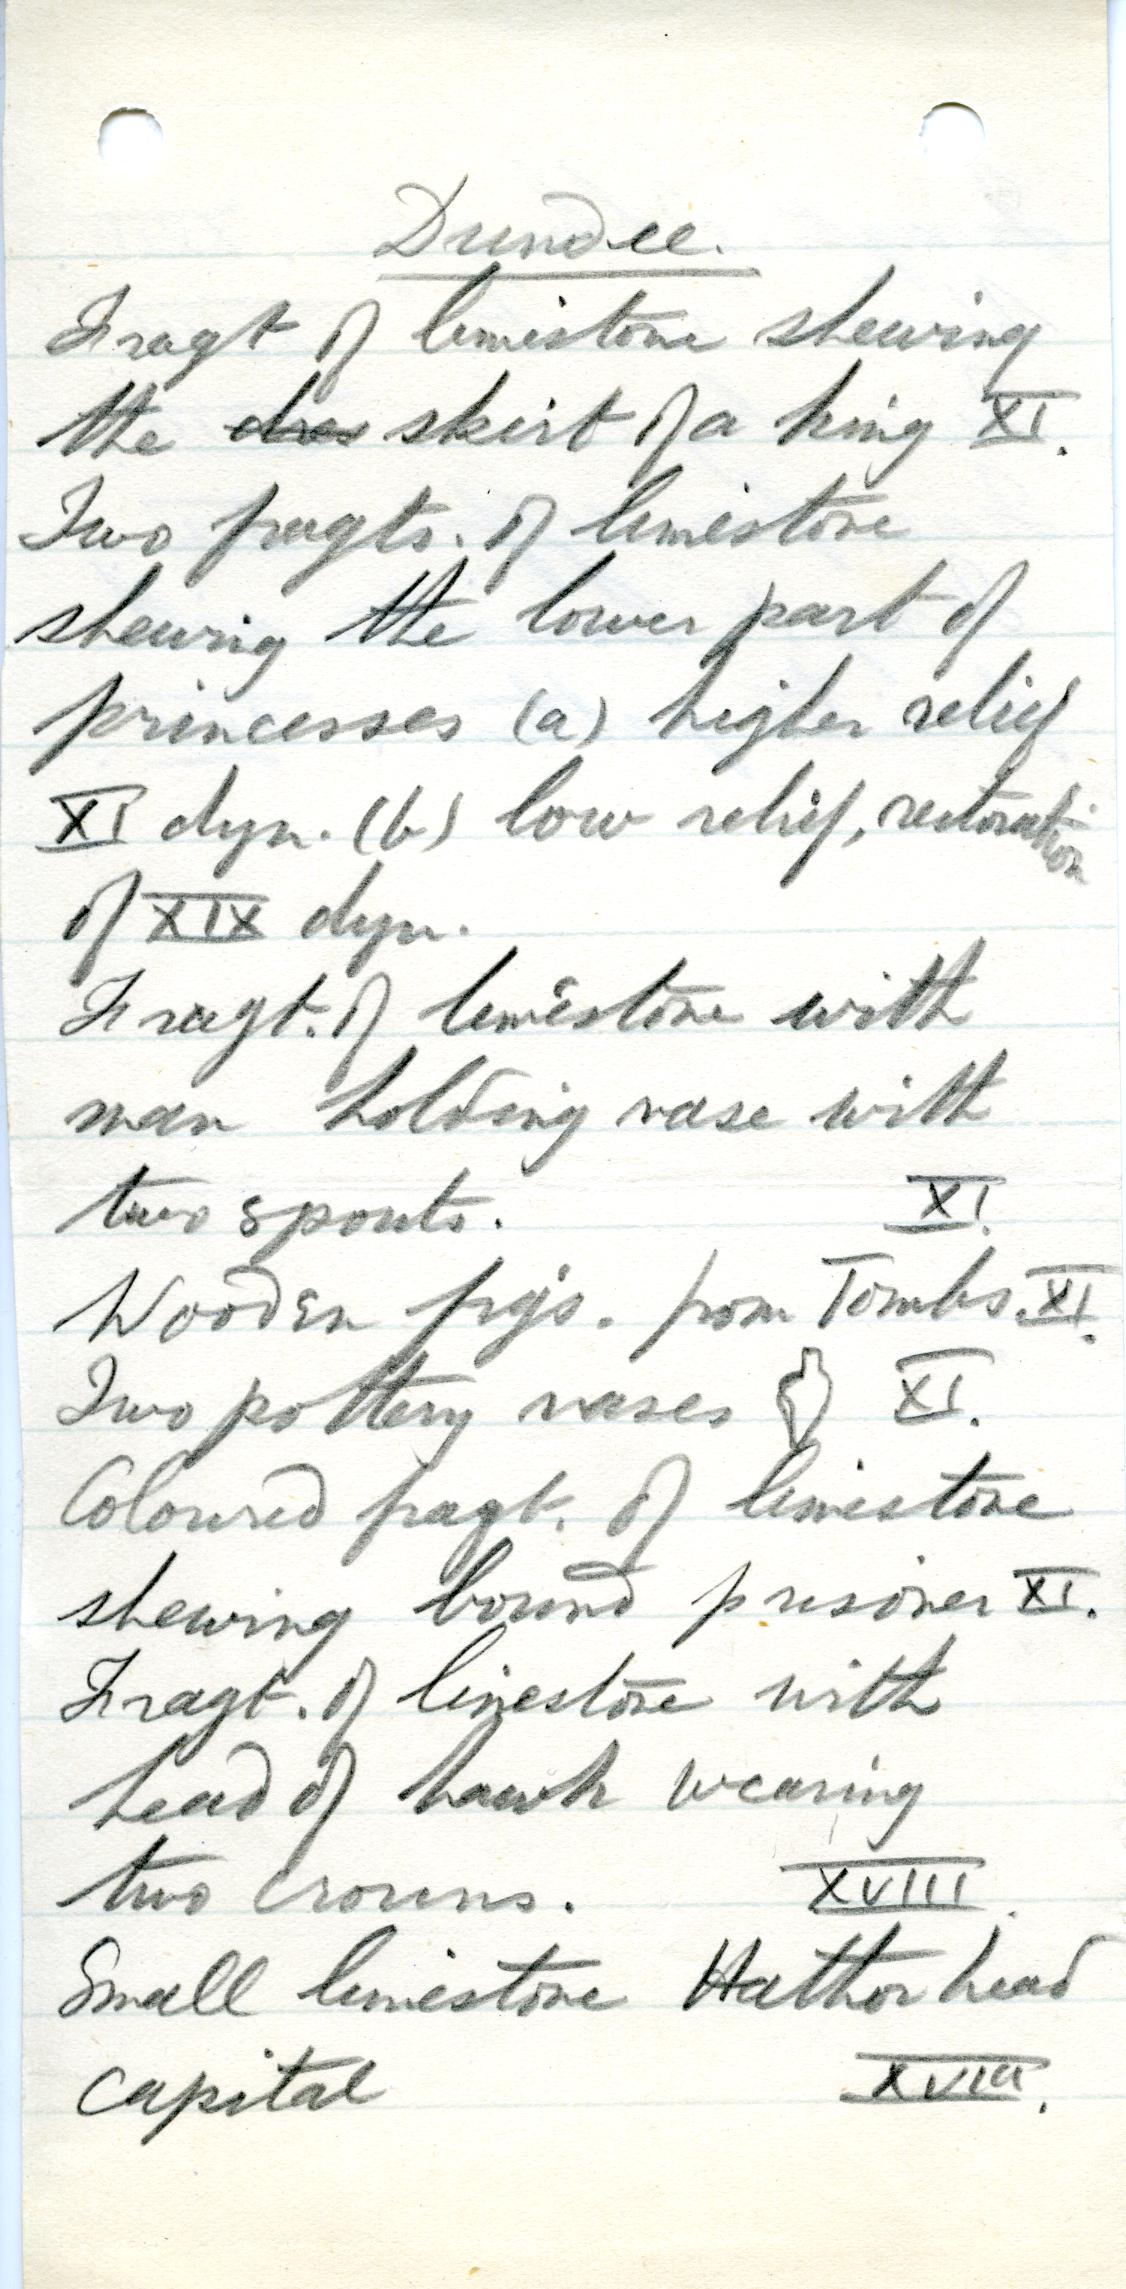 Dundee.
Fragt of limestone shewing
the dres skirt of a king XI.
Two fragts. of limestone
shewing the lower part of
princesses (a) higher relief
XI dyn. (b) low relief, restoration
of XIX dyn.
Fragt. of limestone with
man holding vase with
two spouts. XI.
Wooden figs. from Tombs. XI.
Two pottery vases XI.
Coloured fragt. of limestone
shewing bound prisoner XI.
Fragt. of limestone with
head of hawk wearing
two crowns. XVIII.
Small limestone Hathor head
capital XVIII.